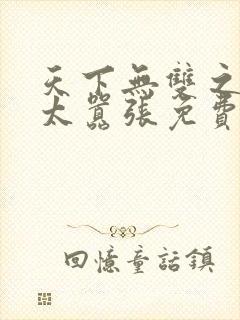 天下無雙之
太囂張免費
回憶童話鎮